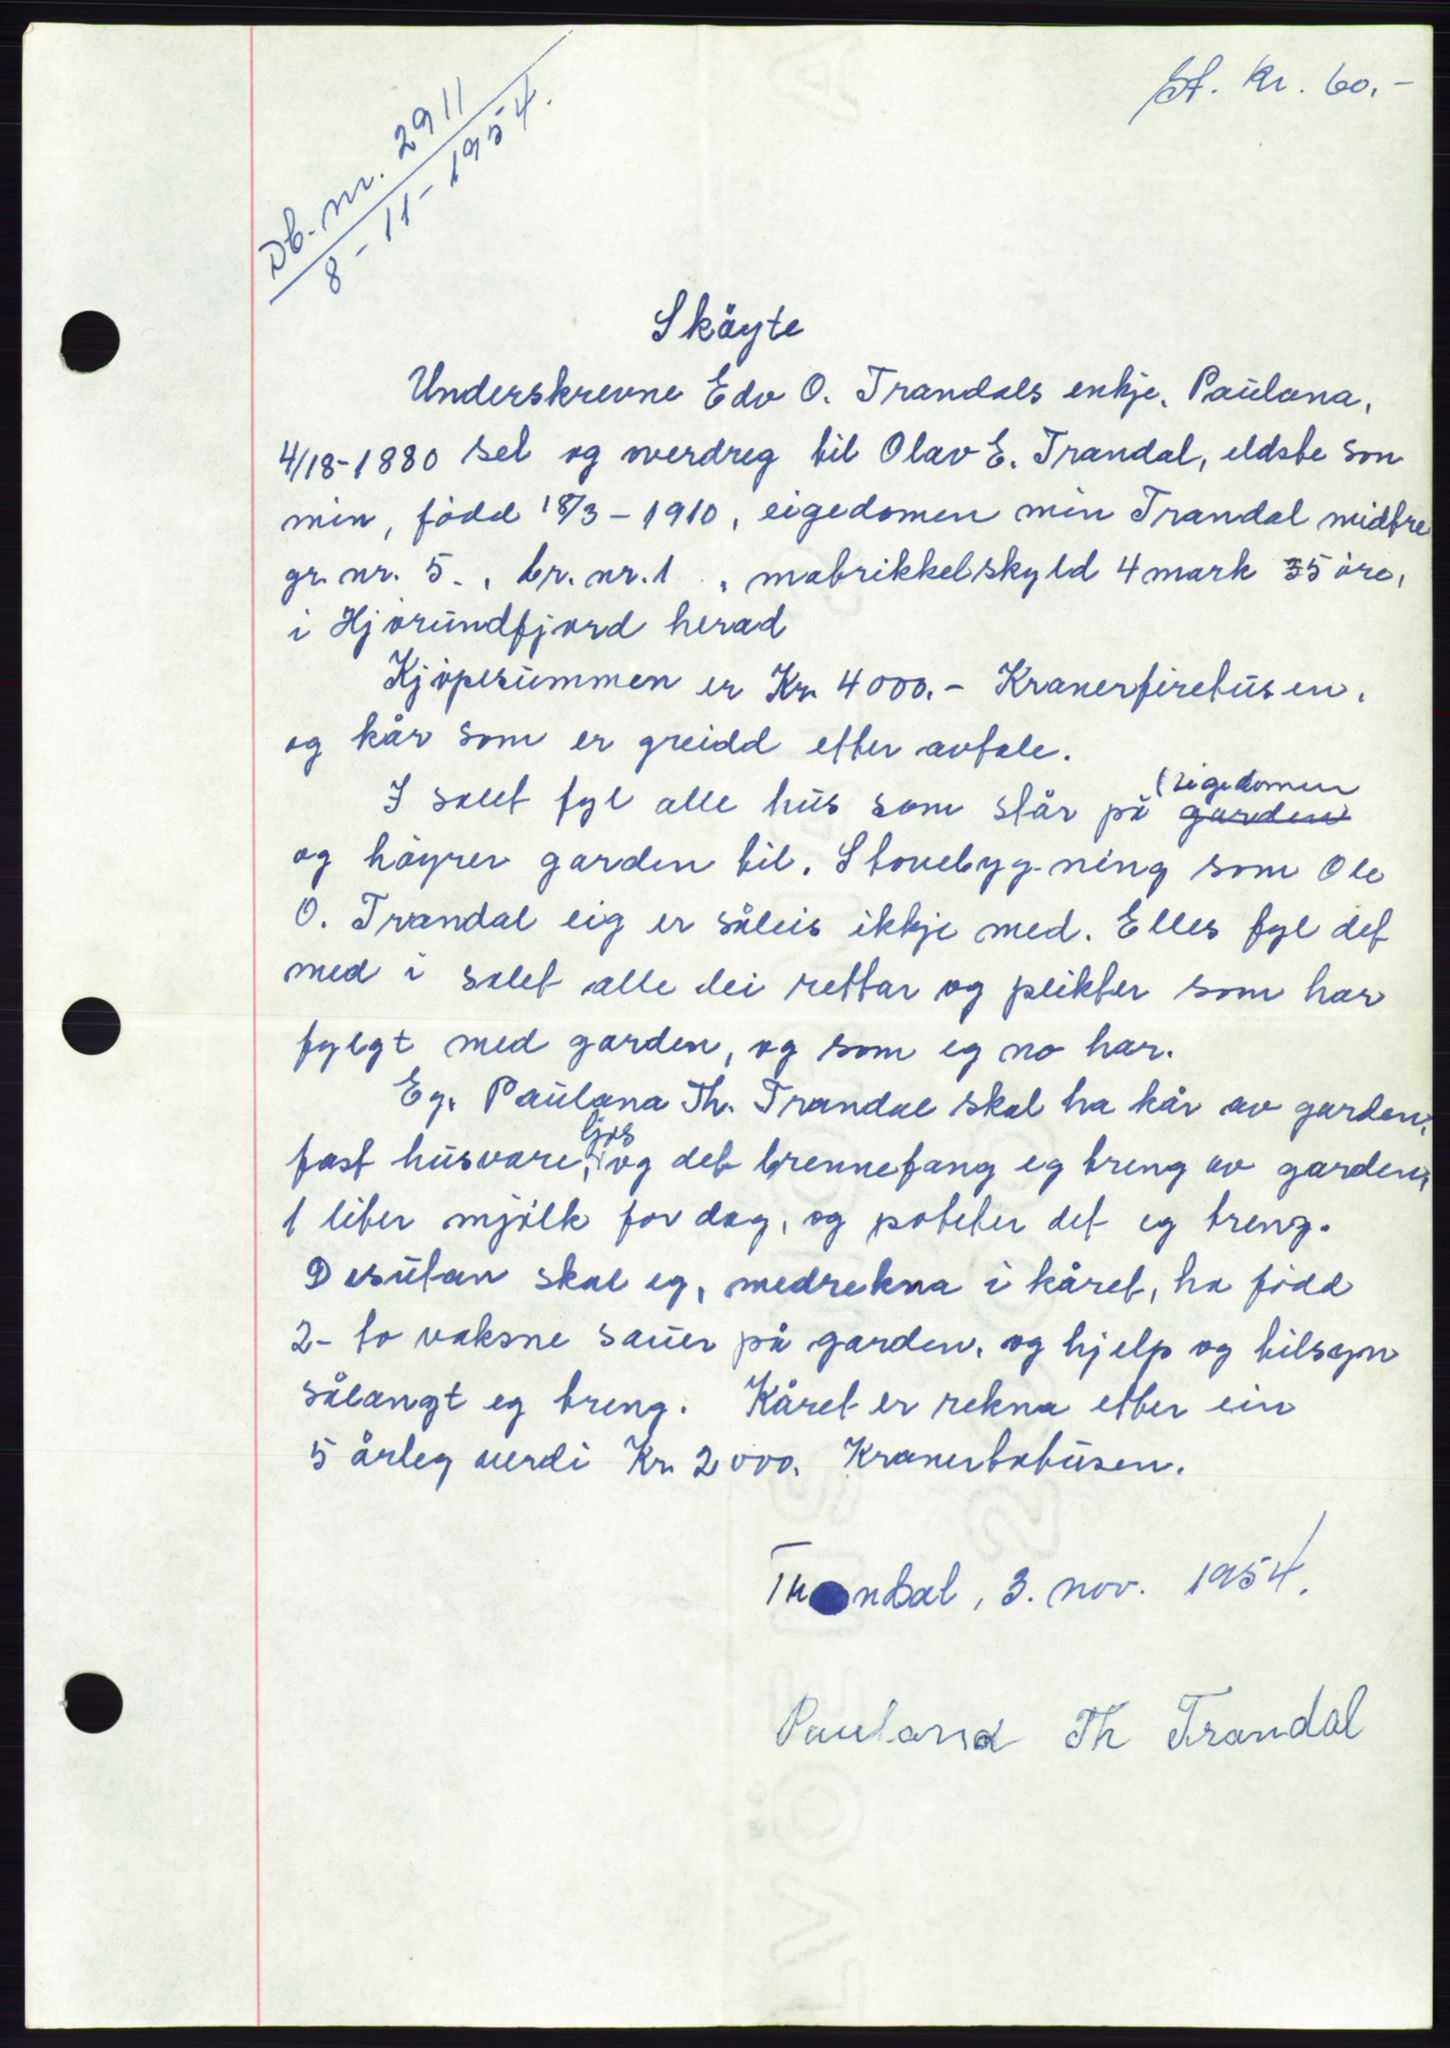 St. kr. 60.-
Db. nr. 2911
8-11-1954.
Sköyte
Underskrevne Edv O. Trandals enkje, Paulana,
4/18-1880 sel og overdreg til Olav E. Trandal, eldste son
min, född 18/3-1910, eigedomen min Trandal midtre
gr. nr. 5., br. nr. 1, matrikkelskyld 4 mark 55 öre,
i Hjörundfjord herad
Kjöpesummen er Kr. 4000.- Kronerfiretusen,
og kår som er greidd etter avtale.
I salet fyl alle hus som står på ~~garden~~ (eigedomen
og höyrer garden til. Stovebygning som Ole
O. Trandal eig er såleis ikkje med. Elles fyl det
med i salet alle dei rettar og plikter som har
fylgt med garden, og som eg no har.
Eg, Paulana Th. Trandal skal ha kår av garden,
fast husvære, ljos og det brennefang eg treng av garden,
1 liter mjölk for dag, og poteter det eg treng.
Desutan skal eg, medrekna i kåret, ha född
2- to vaksne sauer på garden, og hjelp og tilsyn
sålangt eg treng. Kåret er rekna etter ein
5 årleg verdi Kr. 2000. Kronertotusen.
Trandal, 3. nov. 1954.
Paulana Th Trandal